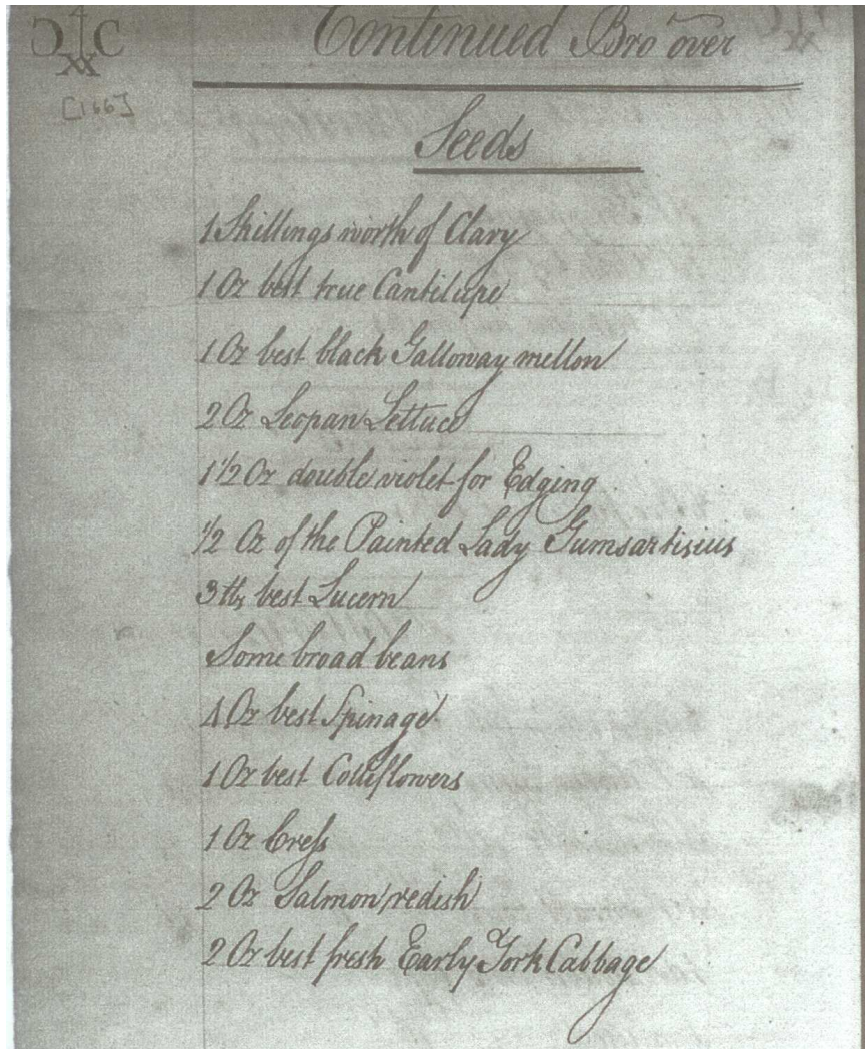 Continued Bro~ over
[166]
Seeds
1 Shillings worth of Clary
1 Oz best true Cantilupe
1 Oz best black Galloway mellon
2 Oz Leopan Lettuce
1 1/2 Oz double violet for Edging
1/2 Oz of the Painted Lady Gumsartisius
3 lbs best Lucern
Some broad beans
4 Oz best Spinage
1 Oz best Colliflowers
1 Oz Cress
2 Oz Salmon redish
2 Oz best fresh Early York Cabbage